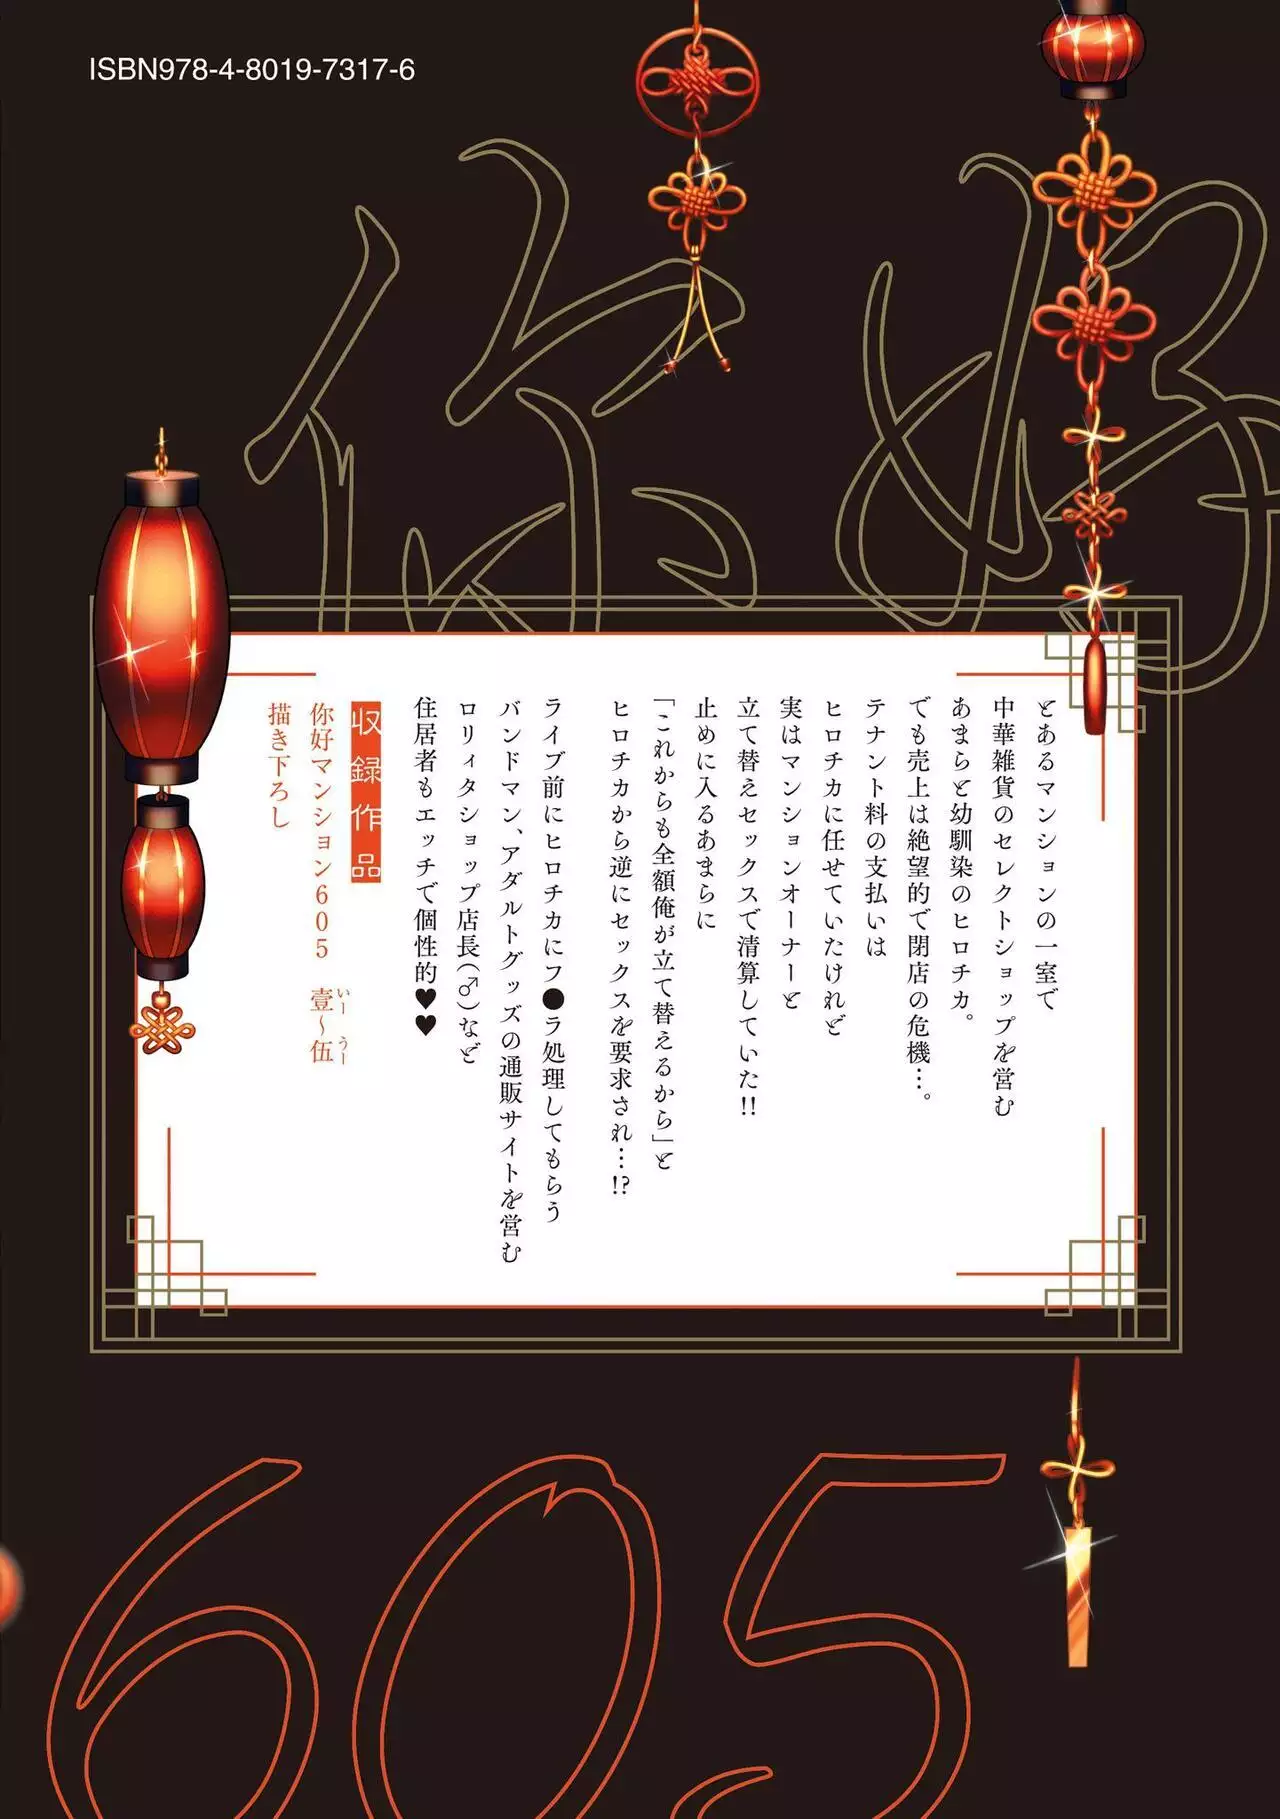 ISBN978-4-8019-7317-6
你好
とあるマンションの一室で
中華雑貨のセレクトショップを営む
あまらと幼馴染のヒロチカ。
でも売上は絶望的で閉店の危機…。
テナント料の支払いは
ヒロチカに任せていたけれど
実はマンションオーナーと
立て替えセックスで清算していた!!
止めに入るあまらに
「これからも全額俺が立て替えるから」と
ヒロチカから逆にセックスを要求され…!?
ライブ前にヒロチカにフ●ラ処理してもらう
バンドマン、アダルトグッズの通販サイトを営む
ロリィタショップ店長(♂)など
住居者もエッチで個性的♥♥
収録作品
你好マンション605 壹〜伍
いー うー
描き下ろし
605